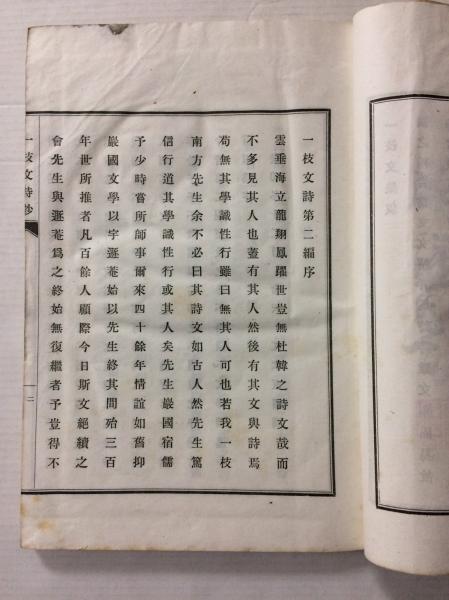 一枝文詩第二編序
雲垂海立龍翔鳳躍世豈無杜韓之詩文哉而
不多見其人也蓋有其人然後有其文與詩焉
苟無其學識性行雖曰無其人可也若我一枝
南方先生余不必曰其詩文如古人然先生篤
信行道其學識性行或其人矣先生巖國宿儒
予少時嘗所師事爾來四十餘年情誼如舊抑
巖國文學以宇遯菴始以先生終其間殆三百
年世所推者凡百餘人顧際今日斯文絕續之
會先生與遯菴爲之終始無復繼者予豈得不
一枝文詩鈔
二